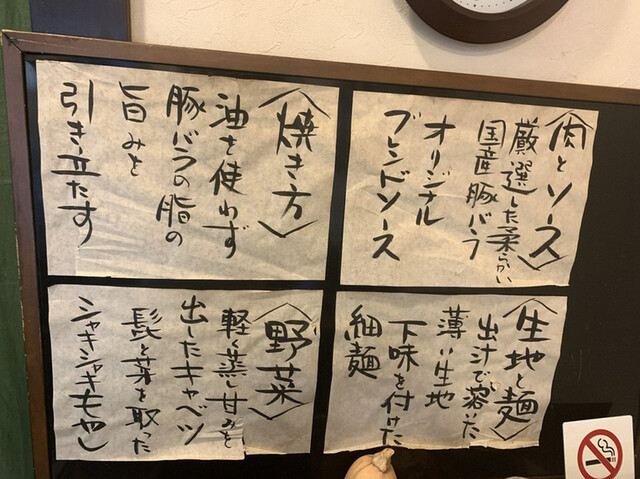 〈肉とソース〉
厳選した柔らかい
国産豚バラ
オリジナル
ブレンドソース
〈焼き方〉
油を使わず
豚バラの脂の
旨みを
引き立たす
〈生地と麺〉
出汁で溶いた
薄い生地
下味を付けた
細麺
〈野菜〉
軽く蒸し甘みを
出したキャベツ
髭と芽を取った
シャキシャキもやし